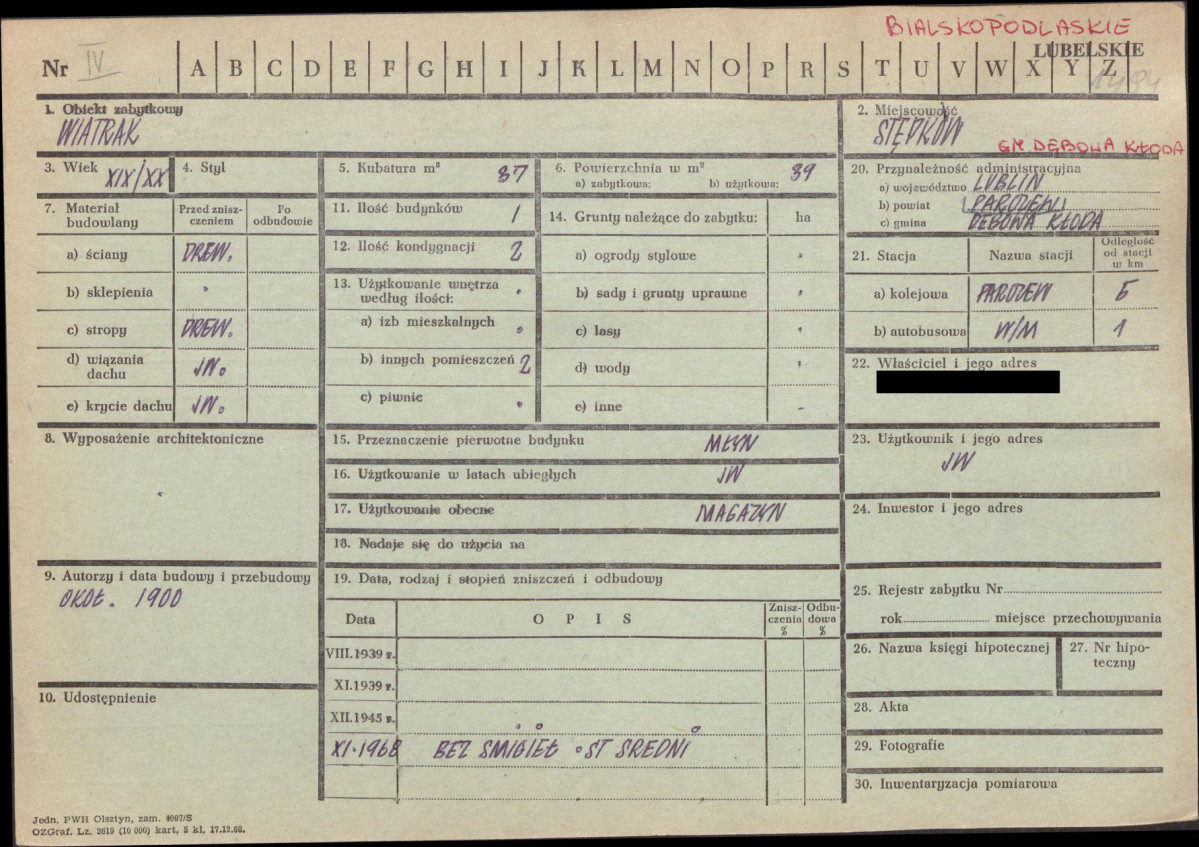 BIALSKOPODLASKIE
LUBELSKIE
Nr IV A B C D E F G H I J K L M N O P R S T U V W X Y Z
1. Obiekt zabytkowy
WIATRAK
2. Miejscowość
STĘPKÓW
GM DĘBOWA KŁODA
3. Wiek XIX/XX
4. Styl
5. Kubatura m³ 87
6. Powierzchnia w m²
a) zabytkowa: b) użytkowa: 39
7. Materiał budowlany
Przed zniszczeniem
Po odbudowie
a) ściany DREW.
b) sklepienia
c) stropy DREW.
d) wiązania dachu JW.
e) krycie dachu JW.
8. Wyposażenie architektoniczne
9. Autorzy i data budowy i przebudowy
OKOŁ. 1900
10. Udostępnienie
11. Ilość budynków 1
12. Ilość kondygnacji 2
13. Użytkowanie wnętrza według ilości:
a) izb mieszkalnych
b) innych pomieszczeń 2
c) piwnic
14. Grunty należące do zabytku: ha
a) ogrody stylowe
b) sady i grunty uprawne
c) lasy
d) wody
e) inne -
15. Przeznaczenie pierwotne budynku MŁYN
16. Użytkowanie w latach ubiegłych JW
17. Użytkowanie obecne MAGAZYN
18. Nadaje się do użycia na
19. Data, rodzaj i stopień zniszczeń i odbudowy
Data
OPIS
Zniszczenia %
Odbudowa %
VIII.1939 r.
XI.1939 r.
XII.1945 r.
XI.1968 BEZ ŚMIGIEŁ ST ŚREDNI
20. Przynależność administracyjna
a) województwo LUBLIN
b) powiat PARCZEW
c) gmina DĘBOWA KŁODA
21. Stacja
Nazwa stacji
Odległość od stacji w km
a) kolejowa PARCZEW 5
b) autobusowa W/M 1
22. Właściciel i jego adres
23. Użytkownik i jego adres
JW
24. Inwestor i jego adres
25. Rejestr zabytku Nr
rok miejsce przechowywania
26. Nazwa księgi hipotecznej
27. Nr hipoteczny
28. Akta
29. Fotografie
30. Inwentaryzacja pomiarowa
Jedn. PWH Olsztyn, zam. 4097/S
OZGraf. Lz. 2619 (10 000) kart. 5 kl. 17.12.68.